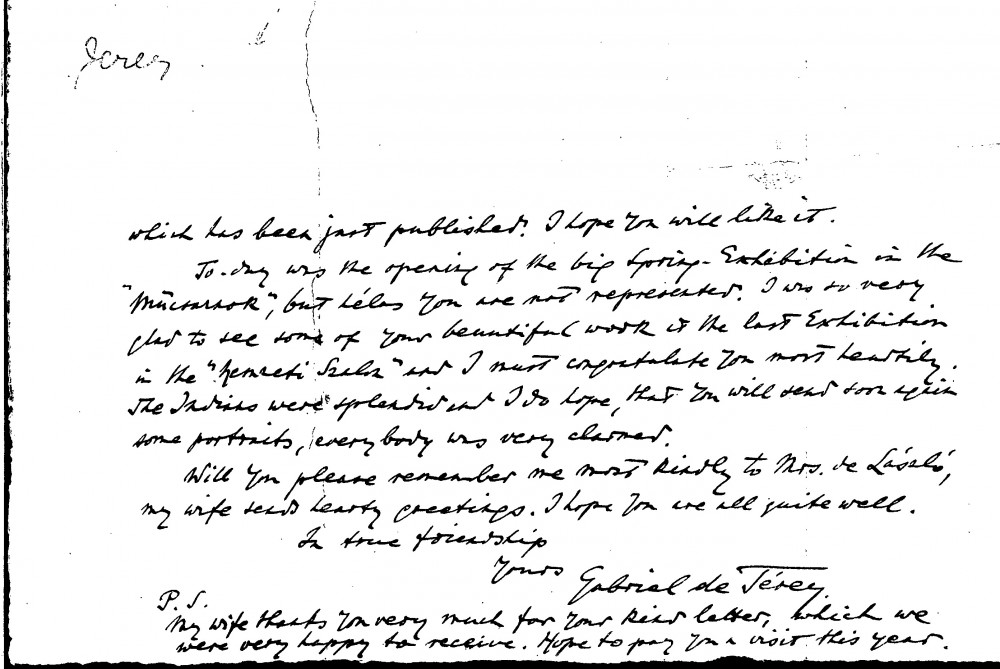 Térey
which has been just published. I hope You will like it.
To-day was the opening of the big Spring-Exhibition in the
"Műcsarnok", but hélas You are not represented. I was so very
glad to see some of Your beautiful work at the last Exhibition
in the "Nemzeti Szalon" and I must congratulate You most heartily.
The Indians were splendid and I do hope, that You will send soon again
some portraits, everybody was very charmed.
Will You please remember me most kindly to Mrs. de László,
my wife sends hearty greetings. I hope You are all quite well.
In true friendship
Yours
Gabriel de Térey.
P.S.
My wife thanks You very much for Your kind letter, which we
were very happy to receive. Hope to pay You a visit this year.